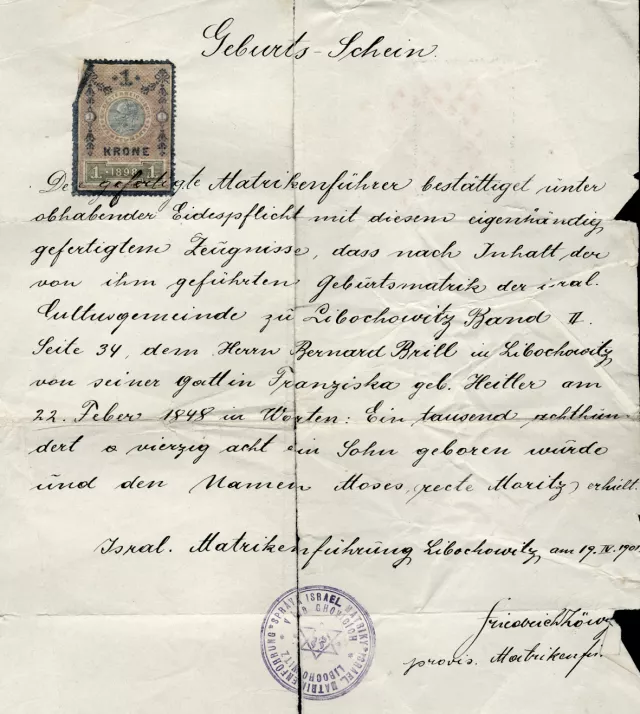 Geburts-Schein.
1
KRONE
1 1898 1
Der gefertigte Matrikenführer bestättiget unter
obhabender Eidespflicht mit diesem eigenhändig
gefertigtem Zeugnisse, dass nach Inhalt der
von ihm geführten Geburtsmatrik der isral.
Cultusgemeinde zu Libochowitz Band II.
Seite 34, dem Herrn Bernard Brill in Libochowitz
von seiner Gattin Franziska geb. Heitler am
22. Feber 1848 in Worten: Ein tausend achthun-
dert & vierzig acht ein Sohn geboren wurde
und den Namen Moses, recte Moritz, erhielt.
Isral. Matrikenführung Libochowitz, am 19. IV. 1901
SPRÁVA ISRAEL. MATRIKY
ISRAEL. MATRIKENFÜHRUNG
LIBOCHOWITZ
Friedrich Löwy
provis. Matrikenf.